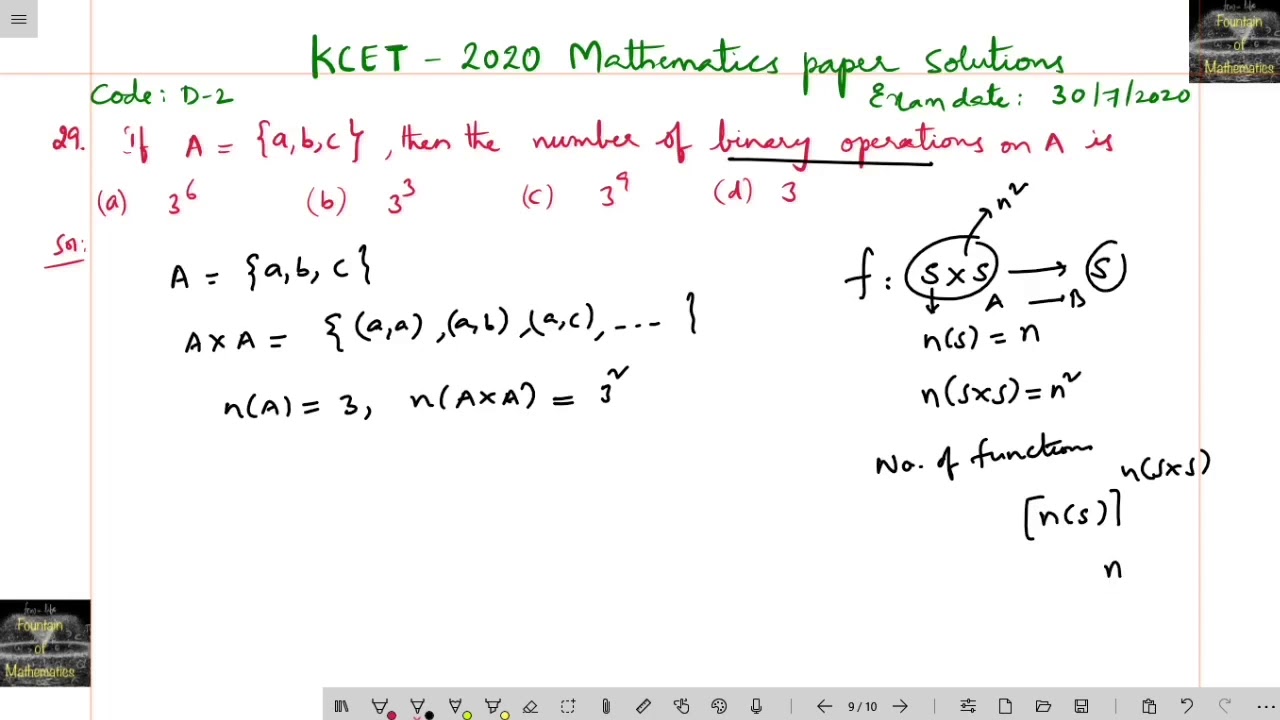 KCET - 2020 Mathematics paper Solutions
Code: D-2
Exam date: 30/7/2020
29. If A = {a,b,c}, then the number of binary operations on A is
(a) 3⁶ (b) 3³ (c) 3⁹ (d) 3
Sol:
A = {a,b,c}
A×A = {(a,a),(a,b),(a,c),.... }
n(A) = 3, n(A×A) = 3²
n²
f: S×S → S
A → B
n(S) = n
n(S×S) = n²
No. of function
[n(S)]ⁿ⁽ˢˣˢ⁾
n
Fountain
of
Mathematics
Fountain
of
Mathematics
9/10